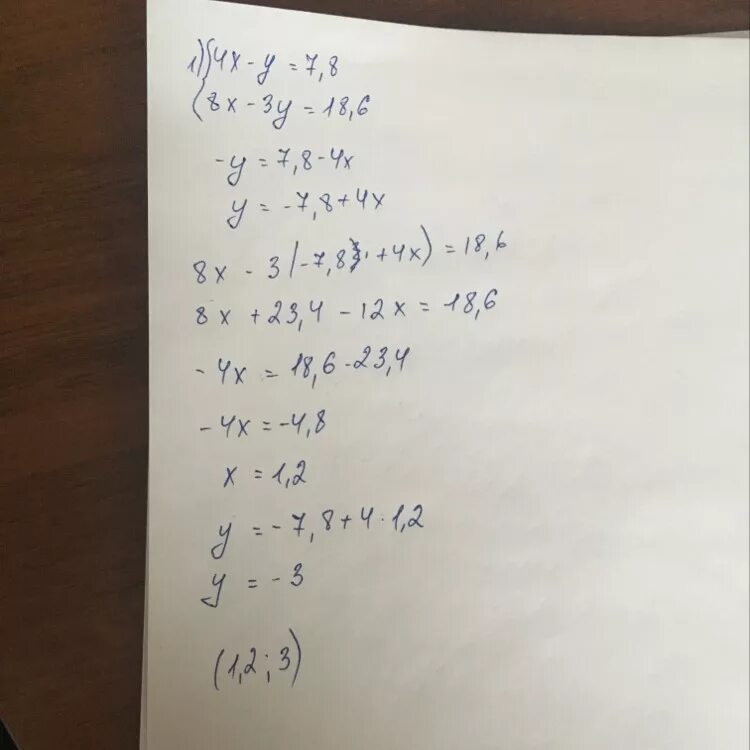 1) { 4x - y = 7,8
{ 8x - 3y = 18,6
-y = 7,8 - 4x
y = -7,8 + 4x
8x - 3(-7,8 + 4x) = 18,6
8x + 23,4 - 12x = 18,6
-4x = 18,6 - 23,4
-4x = -4,8
x = 1,2
y = -7,8 + 4 · 1,2
y = -3
(1,2 ; 3)